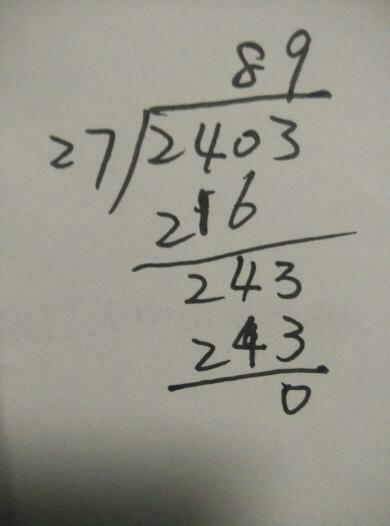 89
27 2403
216
243
243
0